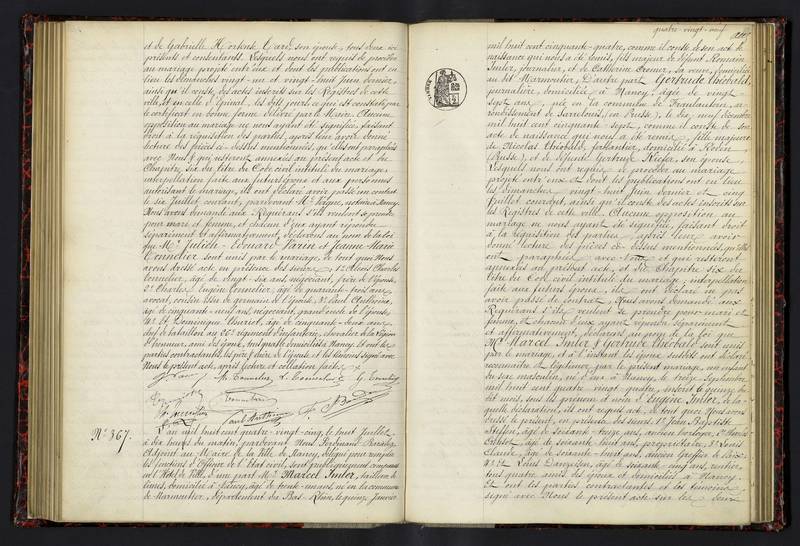 et de Gabrielle Hortense Gard, son épouse, tous deux ici
présents et consentants. Lesquels nous ont requis de procéder
au mariage projeté entr'eux et dont les publications ont eu
lieu les dimanches vingt-un et vingt-huit juin dernier,
ainsi qu'il conste des actes inscrits sur les Registres de cette
ville, et en celle d'Epinal, les dits jours ce qui est constaté par
le certificat en bonne forme délivré par le Maire. Aucune
opposition au mariage ne nous ayant été signifiée, faisant
droit à la réquisition des parties, après leur avoir donné
lecture des pièces ci-dessus mentionnées, qu'elles ont paraphées
avec Nous & qui resteront annexées au présent acte et du
Chapitre six du titre du Code civil intitulé du mariage;
interpellation faite aux futurs époux et aux personnes
autorisant le mariage, ils ont déclaré avoir passé un contrat
le six Juillet courant, pardevant Me notaire à Nancy.
Nous avons demandé aux Requérans s'ils veulent se prendre
pour mari et femme, et chacun d'eux ayant répondu
séparément & affirmativement, déclarons au nom de la loi
que Mr. Julien-Edouard Varin et Jeanne Marie
Connelier sont unis par le mariage, de tout quoi Nous
avons dressé acte en présence des sieurs 1° Alexis Charles
Connelier, âgé de vingt-six ans, négociant, frère de l'épouse,
2° Charles Eugène Connelier, âgé de quarante-trois ans,
avocat, cousin issu de germain de l'épouse, 3° Paul
âgé de cinquante-neuf ans, négociant, grand oncle de l'épouse,
4° et Dominique Henriet, âgé de cinquante-deux ans,
chef de bataillon au 26e régiment d'infanterie, chevalier de la Légion
d'honneur, ami des époux, tous quatre domiciliés à Nancy. Et ont les
parties contractantes, les père & mère de l'épouse et les témoins signé avec
Nous le présent acte, après lecture et collation faites.
N° 367.
L'an mil huit cent quatre-vingt-cinq, le huit Juillet
à dix heures du matin, pardevant Nous Ferdinand
Adjoint au Maire de la Ville de Nancy, délégué pour remplir
les fonctions d'Officier de l'Etat civil, sont publiquement comparus
en l'Hôtel de Ville, d'une part Mr. Marcel Imler, tailleur de
limes, domicilié à Nancy, âgé de trente-un ans, né en la commune
de Marmoutier, département du Bas-Rhin, le quinze Janvier
quatre-vingt-neuf
mil huit cent cinquante-quatre, comme il conste de son acte de
naissance qui nous a été remis, fils majeur de défunt Romain
Imler, journalier, et de Catherine sa veuve, domiciliée
au dit Marmoutier. D'autre part Gertrude Théobald,
journalière, domiciliée à Nancy, âgée de vingt-
sept ans, née en la commune de Fraulautern, ar-
rondissement de Sarrelouis, (en Prusse), le dix neuf décembre
mil huit cent cinquante sept, comme il conste de son
acte de naissance qui nous a été remis, fille majeure
de Nicolas Théobald, ferblantier, domicilié à
(Prusse), et de défunte Gertrude son épouse.
Lesquels nous ont requis de procéder au mariage
projeté entr'eux et dont les publications ont eu lieu
les Dimanches vingt-huit Juin dernier et cinq
Juillet courant, ainsi qu'il conste des actes inscrits sur
les Registres de cette ville. Aucune opposition au
mariage ne nous ayant été signifiée, faisant droit
à la réquisition des parties, après leur avoir
donné lecture des pièces ci-dessus mentionnées, qu'elles
ont paraphées avec Nous et qui resteront
annexées au présent acte, et du Chapitre six du
titre du Code civil intitulé du mariage; interpellation
faite aux futurs époux, ils ont déclaré ne pas
avoir passé de contrat. Nous avons demandé aux
Requérans s'ils veulent se prendre pour mari et
femme, et chacun d'eux ayant répondu séparément
et affirmativement, déclarons au nom de la loi que
Mr. Marcel Imler & Gertrude Théobald sont unis
par le mariage, et à l'instant les époux susdits ont déclaré
reconnaître et légitimer par le présent mariage, un enfant
du sexe masculin, né d'eux à Nancy, le treize Septembre
mil huit cent quatre-vingt-quatre, inscrit le quinze du
dit mois, sous les prénom & nom d'Eugène Imler, de la-
quelle déclaration, ils ont requis acte, de tout quoi Nous avons
dressé le présent, en présence des sieurs 1° Jean Baptiste
âgé de soixante-treize ans, ancien horloger, 2°
âgé de soixante-huit ans, propriétaire, 3° Louis
Claude, âgé de soixante-huit ans, ancien Greffier de Paix
& 4° Louis âgé de soixante-cinq ans, rentier,
tous quatre amis des époux et domiciliés à Nancy.
Et ont les parties contractantes et les témoins
signé avec Nous le présent acte sur les deux